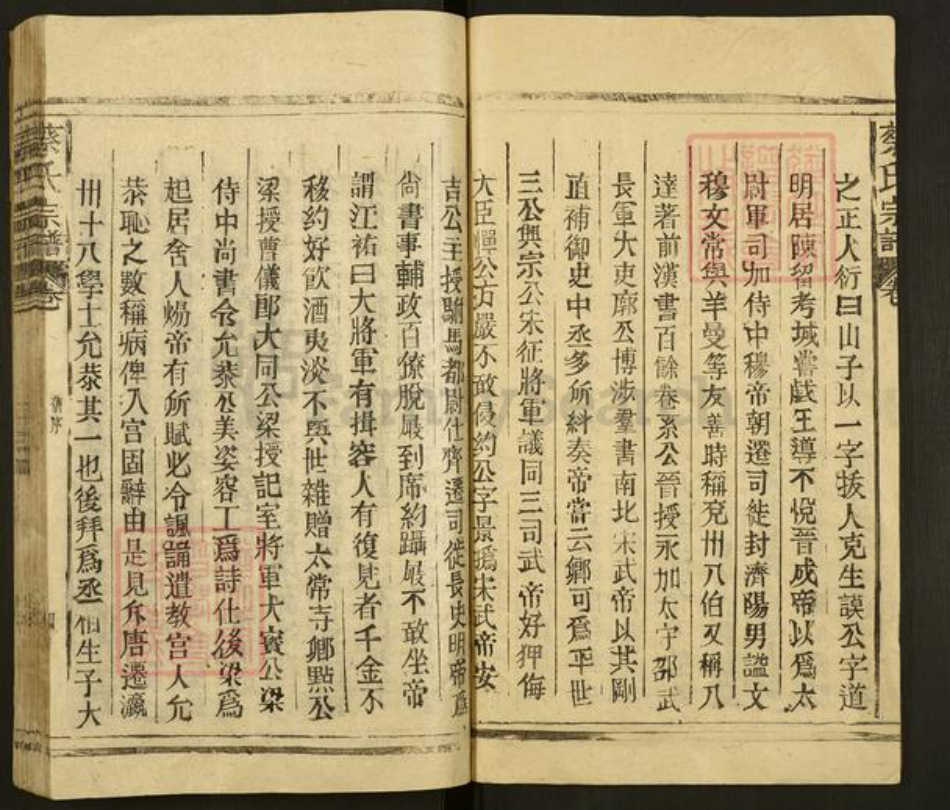 蔡氏宗譜
之正人衍曰山子以一字拔人克生謨公字道
明居陳留考城嘗戲王導不悅晉成帝以為太
尉軍司加侍中穆帝朝遷司徙封濟陽男謚文
穆文常與羊曼等友善時稱兗卅八伯又稱八
達著前漢書百餘卷系公晉授永加太守邵武
長軍大吏廓公博涉羣書南北宋武帝以其剛
直補御史中丞多所糾奏帝嘗云鄉可為平世
三公興宗公宋征將軍議同三司武帝好狎侮
大臣憚公方嚴不敢侵約公字景撝宋武帝安
吉公主授駙馬都尉仕齊遷司徙長史明帝為
尙書事輔政百僚脫屐到席約躡屐不敢坐帝
謂江祐曰大將軍有揖客人有復見者千金不
移約好飲酒夷淡不與世雜贈太常寺鄉㸃公
梁授曹儀郎大同公梁授記室將軍大寳公梁
侍中尚書令允㳟公美姿容工爲詩仕後梁爲
起居舍人煬帝有所賦必令諷誦遣教宫人允
㳟恥之數稱病俾入宫固辭由是見斥唐遷瀛
卅十八學士允㳟其一也後拜爲丞相生子大
蔡氏宗譜 卷
舊序
四